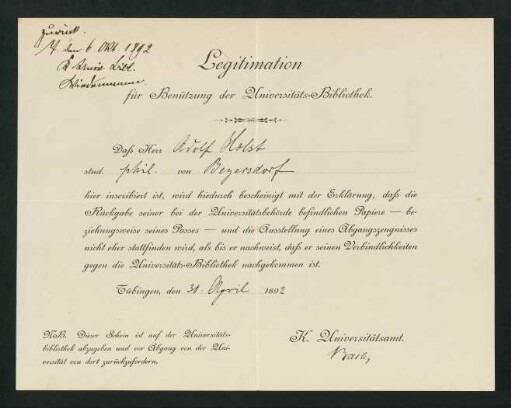 zurück.
T. den 6 Okt 1892
K. Univ. Bibl.
Wiedenmann
Legitimation
für Benützung der Universitäts-Bibliothek.
Daß Herr Adolf Holst
stud. phil. von Beyersdorf
hier inscribiert ist, wird hiedurch bescheinigt mit der Erklärung, daß die
Rückgabe seiner bei der Universitätsbehörde befindlichen Papiere — be-
ziehungsweise seines Passes — und die Ausstellung eines Abgangszeugnisses
nicht eher stattfinden wird, als bis er nachweist, daß er seinen Verbindlichkeiten
gegen die Universitäts-Bibliothek nachgekommen ist.
Tübingen, den 30 April 1892
NB. Dieser Schein ist auf der Universitäts-
bibliothek abzugeben und vor Abgang von der Uni-
versität von dort zurückzufordern.
K. Universitätsamt.